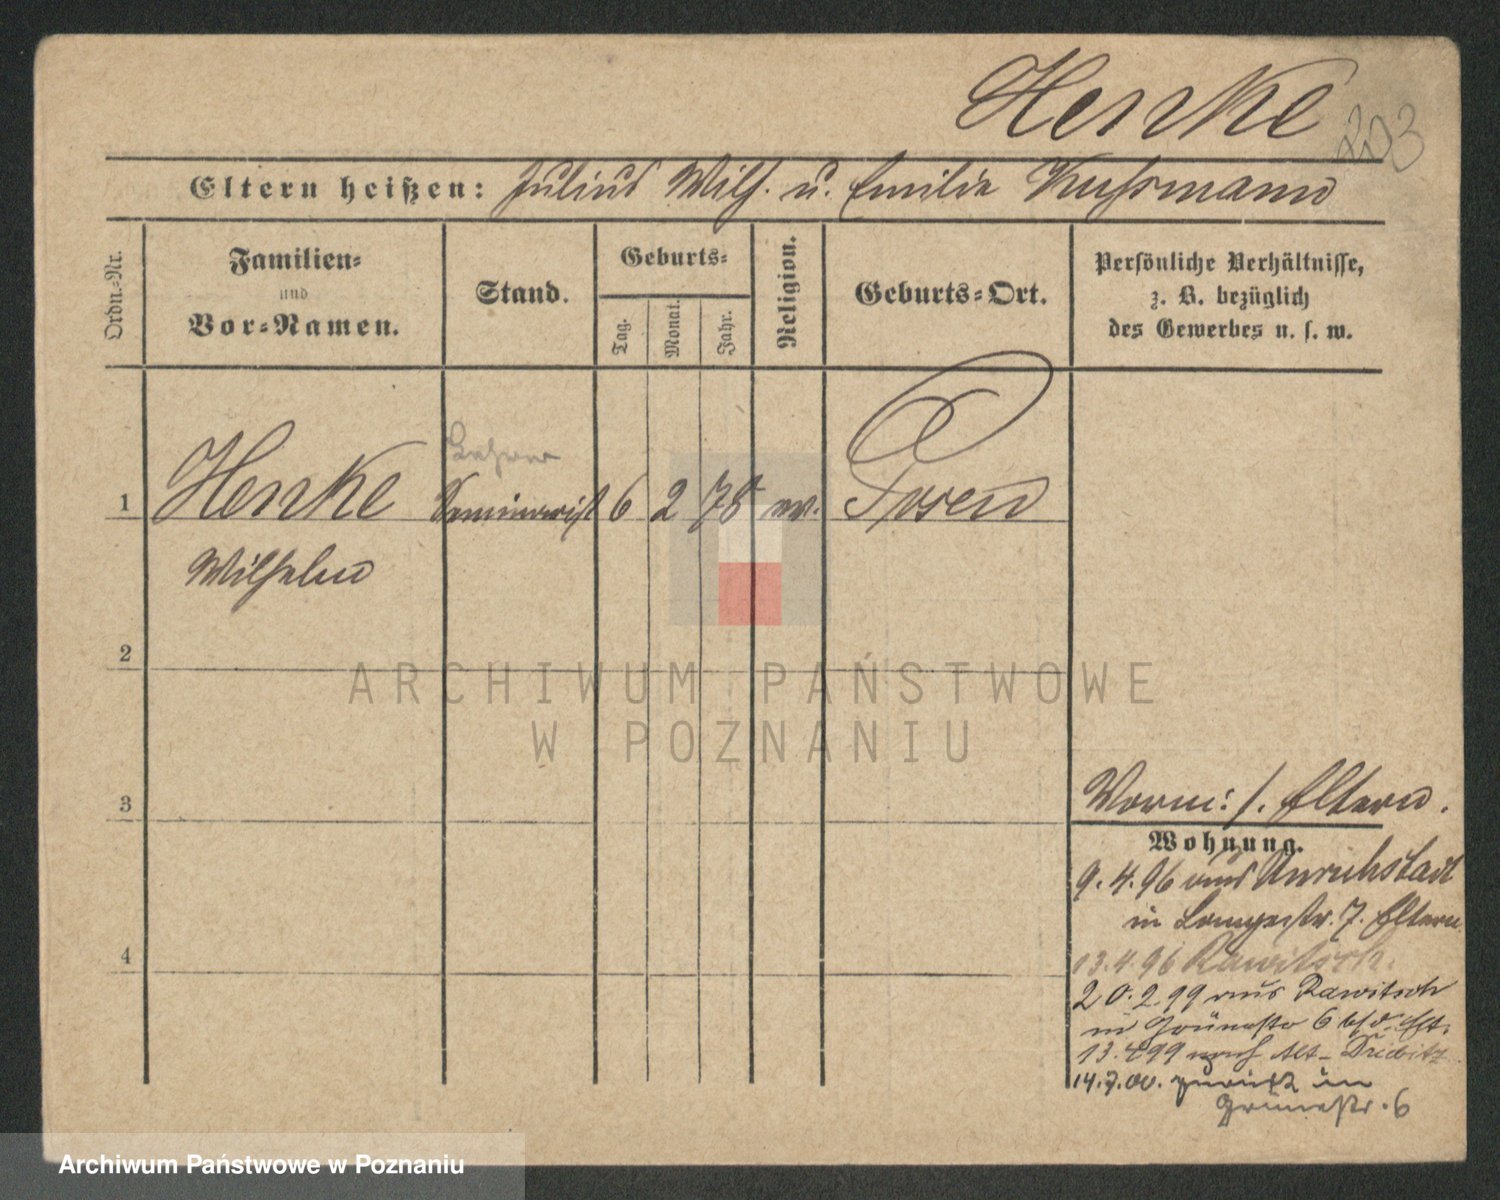 Henke 203
Eltern heißen: Julius Wilh. u. Emilie Kußmann
Ordn.=Nr.
Familien=
und
Vor=Namen.
Stand.
Geburts=
Tag.
Monat.
Jahr.
Religion.
Geburts=Ort.
Persönliche Verhältnisse,
z. B. bezüglich
des Gewerbes u. s. w.
Lehrer
1 Henke Seminarist 6 2 78 ev. Posen
Wilhelm
2
ARCHIWUM PAŃSTWOWE
W POZNANIU
3
Vorm: s. Eltern.
Wohnung.
9.4.96 aus Unruhstadt
in Langestr. 7. Eltern
4
13.4.96 Rawitsch.
20.2.99 aus Rawitsch
in Grünestr 6 b/d. Elt.
13.4.99 nach Alt-
14.7.00. zurück in
Grünestr. 6
Archiwum Państwowe w Poznaniu